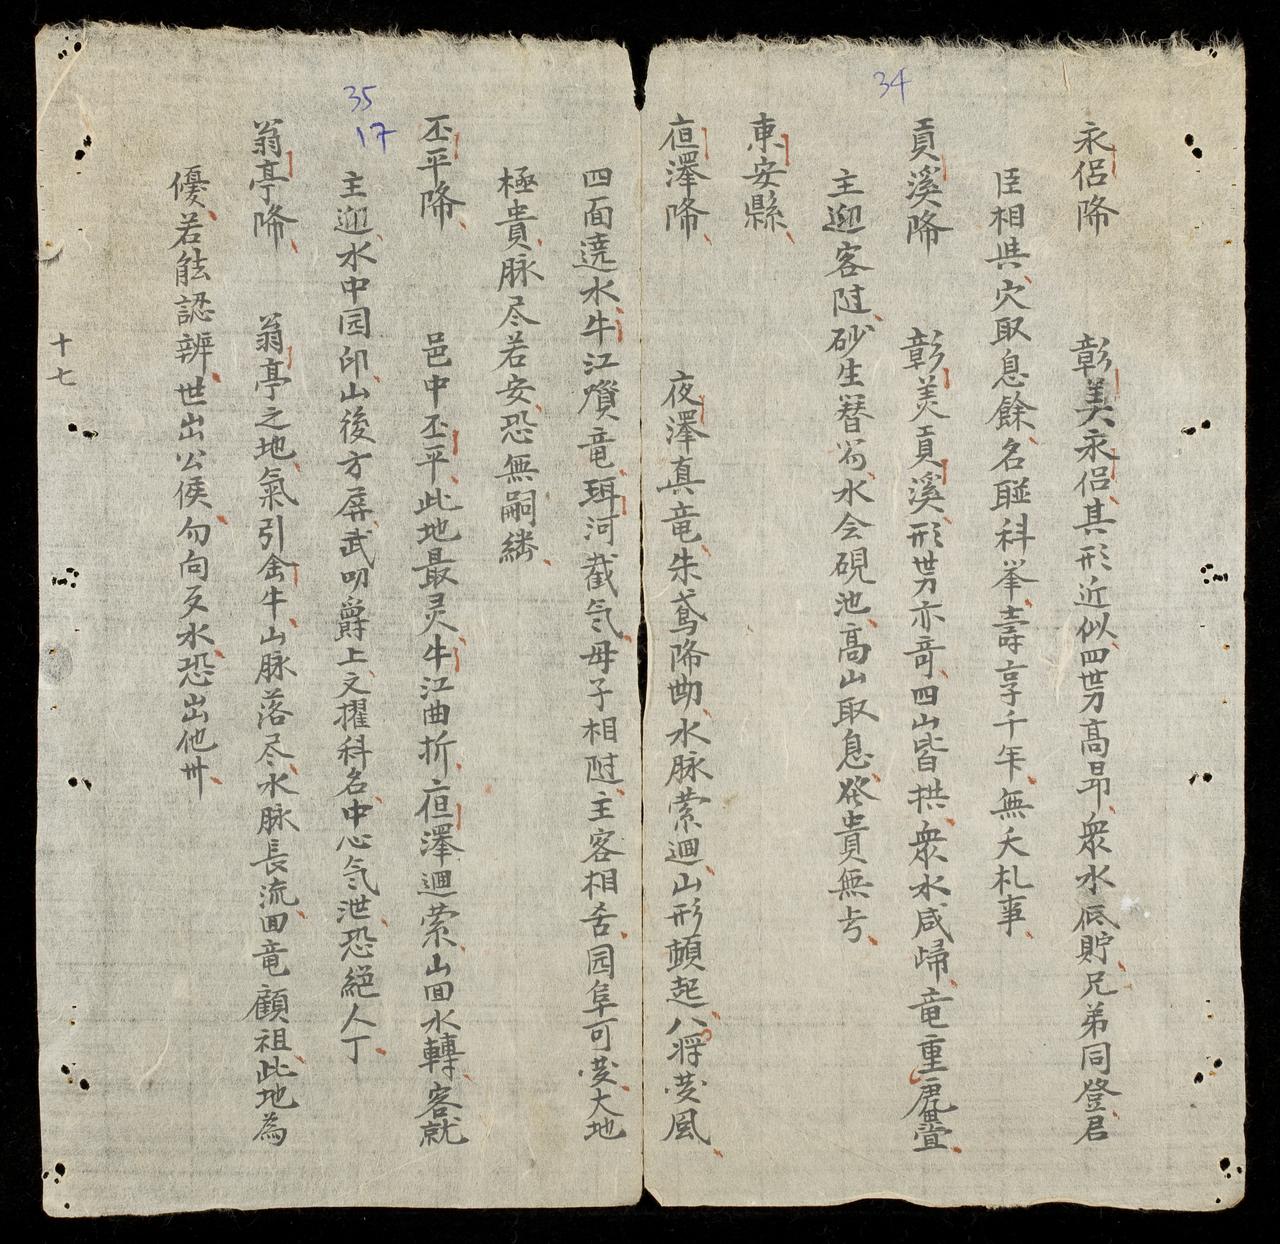 34
永侶㡳 彰美永侶其形近似四势高昻衆水低貯兄弟同登君
臣相共穴取息餘名聯科举壽享千年無夭札事
貢溪㡳 彰美貢溪形势亦竒四山皆拱衆水咸歸竜重虎疊
主迎客陪砂生簪笏水会硯池高山取息發貴無亏
東安縣
夜澤㡳 夜澤真竜朱鳶㡳坳水脉縈迴山形頓起八将藏風
四面遶水牛江噴竜珥河截气母子相陪主客相呑园阜可葬大地
極貴脉尽若安恐無嗣続
35
17
丕平㡳 邑中丕平此地最灵牛江曲折夜澤迴縈山回水轉客就
主迎水中园印山後方屏武叨爵上文擢科名中心气泄恐絕人丁
翁亭㡳 翁亭之地氣引金牛山脉落尽水脉長流回竜顧祖此地為
優若能認辨世出公侯勿向反水恐出他卅
十七